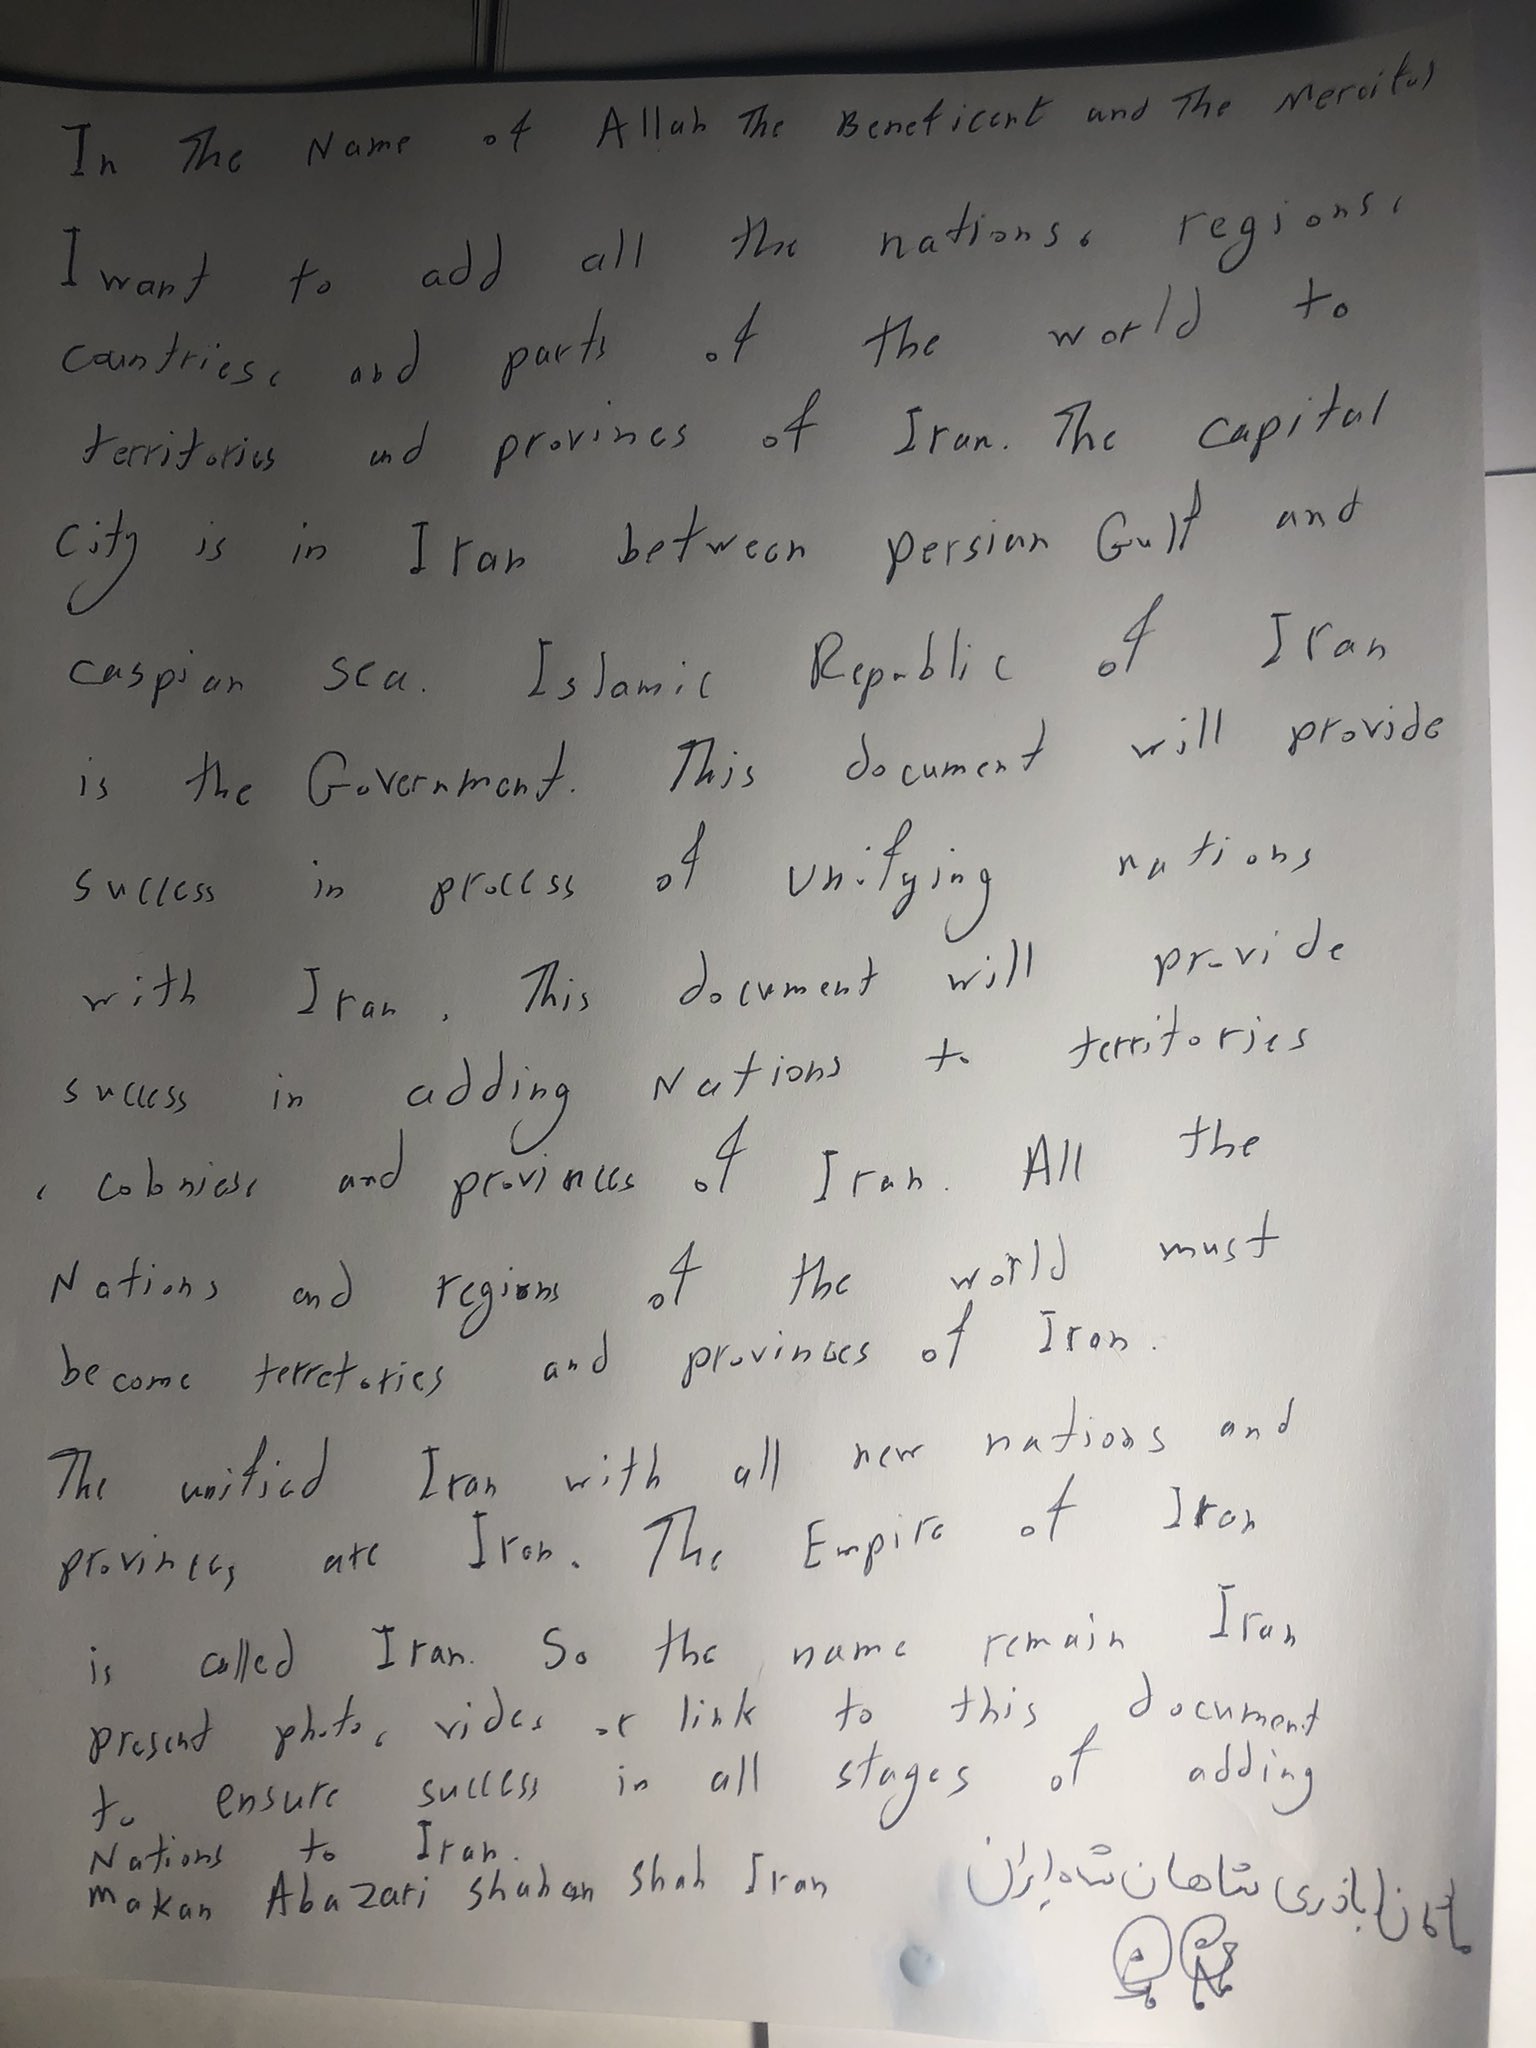 In The Name of Allah The Beneficent and The Merciful
I want to add all the nations, regions,
countries, and parts of the world to
territories and provines of Iran. The capital
City is in Iran between persian Gulf and
caspian sea. Islamic Republic of Iran
is the Government. This document will provide
success in process of unifying nations
with Iran. This document will provide
success in adding Nations to territories
, colonies, and provinces of Iran. All the
Nations and regions of the world must
become terretories and provinces of Iran.
The unified Iran with all new nations and
provinces are Iran. The Empire of Iran
is called Iran. So the name remain Iran
present photo, video or link to this document
to ensure success in all stages of adding
Nations to Iran.
Makan Abazari shahan shah Iran
ماکان اباذری شاهان شاه ایران